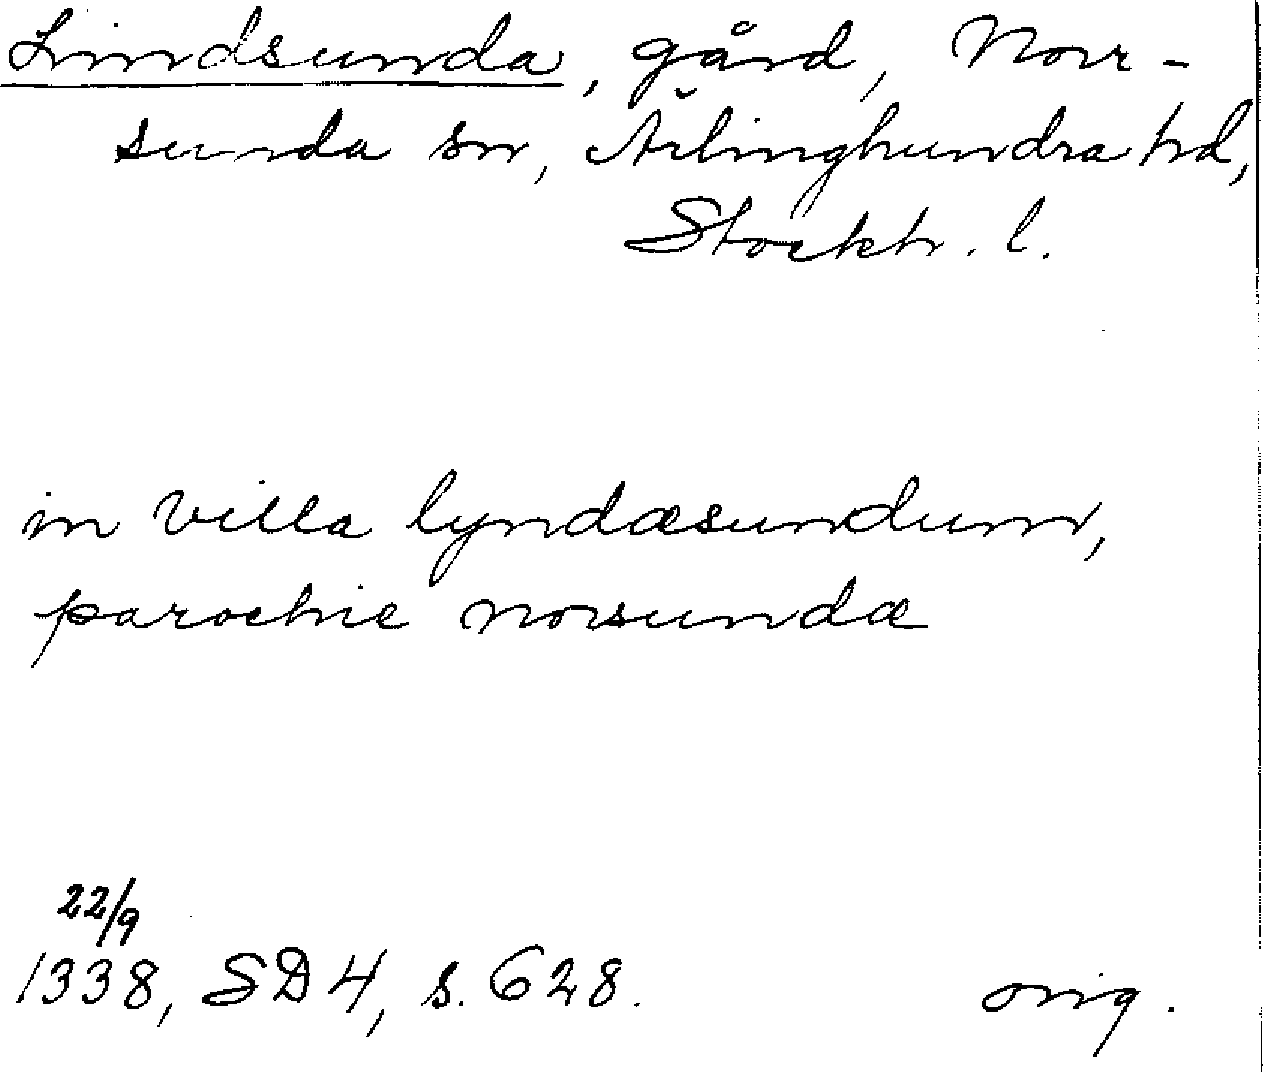 Lindsunda, gård, Norr-
sunda sn, Ärlinghundra hd,
Stockh. l.
in villa lyndæsundum,
parochie norsundæ
22/9
1338, SD 4, s. 628. orig.